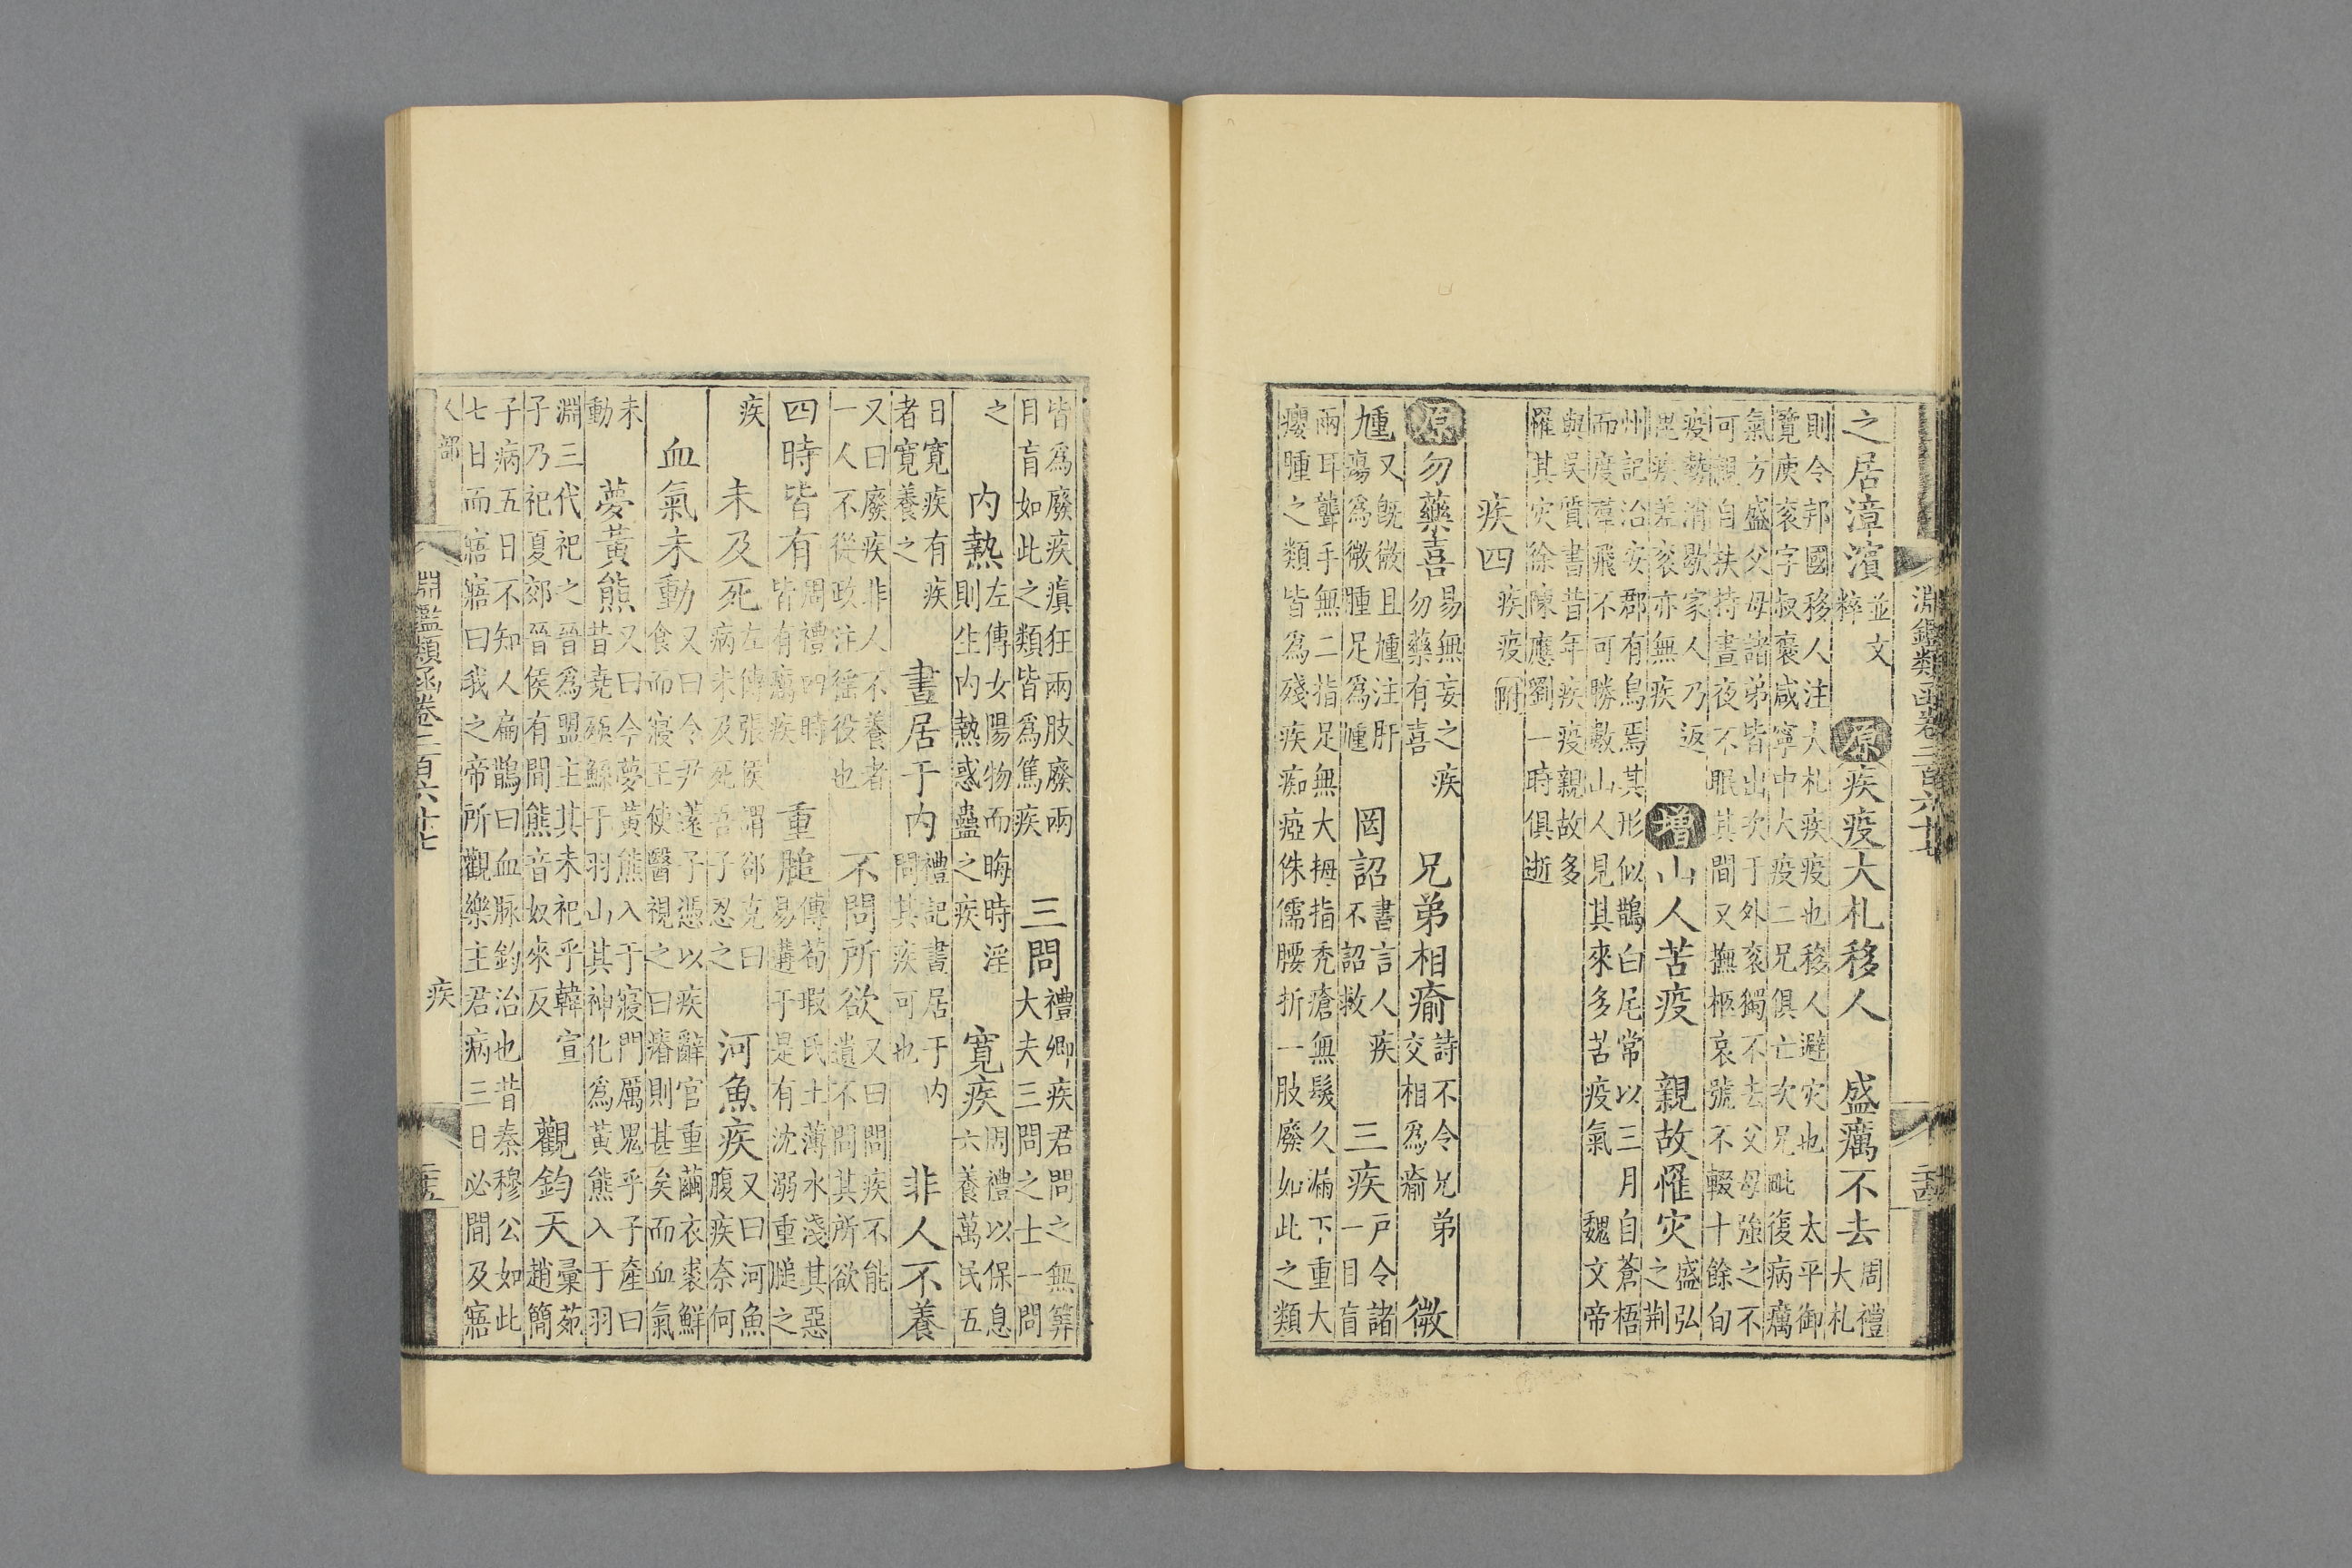 淵鑑類函卷三百六十七 二十四
之居漳濱並文粹 原疾疫大札移人 盛癘不去周禮大札
則令邦國移人注大札疾疫也移人避灾也 太平御
覽庾衮字叔褒咸寧中大疫二兄俱亡次兄毗復病癘
氣方盛父母諸弟皆出次于外衮獨不去父母強之不
可親自扶持晝夜不眠其間又撫柩哀號不輟十餘旬
疫勢消歇家人乃返毘疾差衮亦無疾 增山人苦疫 親故罹灾盛弘之荆
州記治安郡有鳥焉其形似鵲白尾常以三月自蒼梧
而度羣飛不可勝數山人見其來多苦疫氣 魏文帝
與吳質書昔年疾疫親故多
罹其灾徐陳應劉一時俱逝
疾四疾疫附
原勿藥喜易無妄之疾勿藥有喜 兄弟相瘉詩不令兄弟交相為瘉 微
尰又既微且尰注肝瘍為微腫足為尰 罔詔書言人疾不詔救 三疾戸令諸一目盲
兩耳聾手無二指足無大拇指秃瘡無髮久漏下重大
癭腫之類皆為殘疾痴瘂侏儒腰折一肢廢如此之類
皆為廢疾瘨狂兩肢廢兩目盲如此之類皆為篤疾 三問禮卿疾君問之無筭大夫三問之士一問
之 內熱左傳女陽物而晦時淫則生內熱惑蠱之疾 寬疾周禮以保息六養萬民五
曰寬疾有疾者寬養之 晝居于內禮記晝居于內問其疾可也 非人不養
又曰廢疾非人不養者一人不從政注徭役也 不問所欲又曰問疾不能遺不問其所欲
四時皆有周禮四時皆有癘疾 重膇傳荀瑕氏土薄水淺其惡易覯于是有沈溺重膇之
疾 未及死左傳張侯謂郤克曰病未及死吾子忍之 河魚疾又曰河魚腹疾奈何
血氣未動又曰令尹薳子馮以疾辭官重繭衣裘鮮食而寢王使醫視之曰瘠則甚矣而血氣
未動 夢黃熊又曰今夢黃熊入于寢門厲鬼乎子產曰昔堯殛鯀于羽山其神化為黃熊入于羽
淵三代祀之晉為盟主其未祀乎韓宣子乃祀夏郊晉侯有間熊音奴來反 觀鈞天彙苑趙簡
子病五日不知人扁鵲曰血脉鈞治也昔秦穆公如此
七日而寤寤曰我之帝所觀樂主君病三日必間及寤
人部 疾
淵鑑類函卷三百六十七 二十五